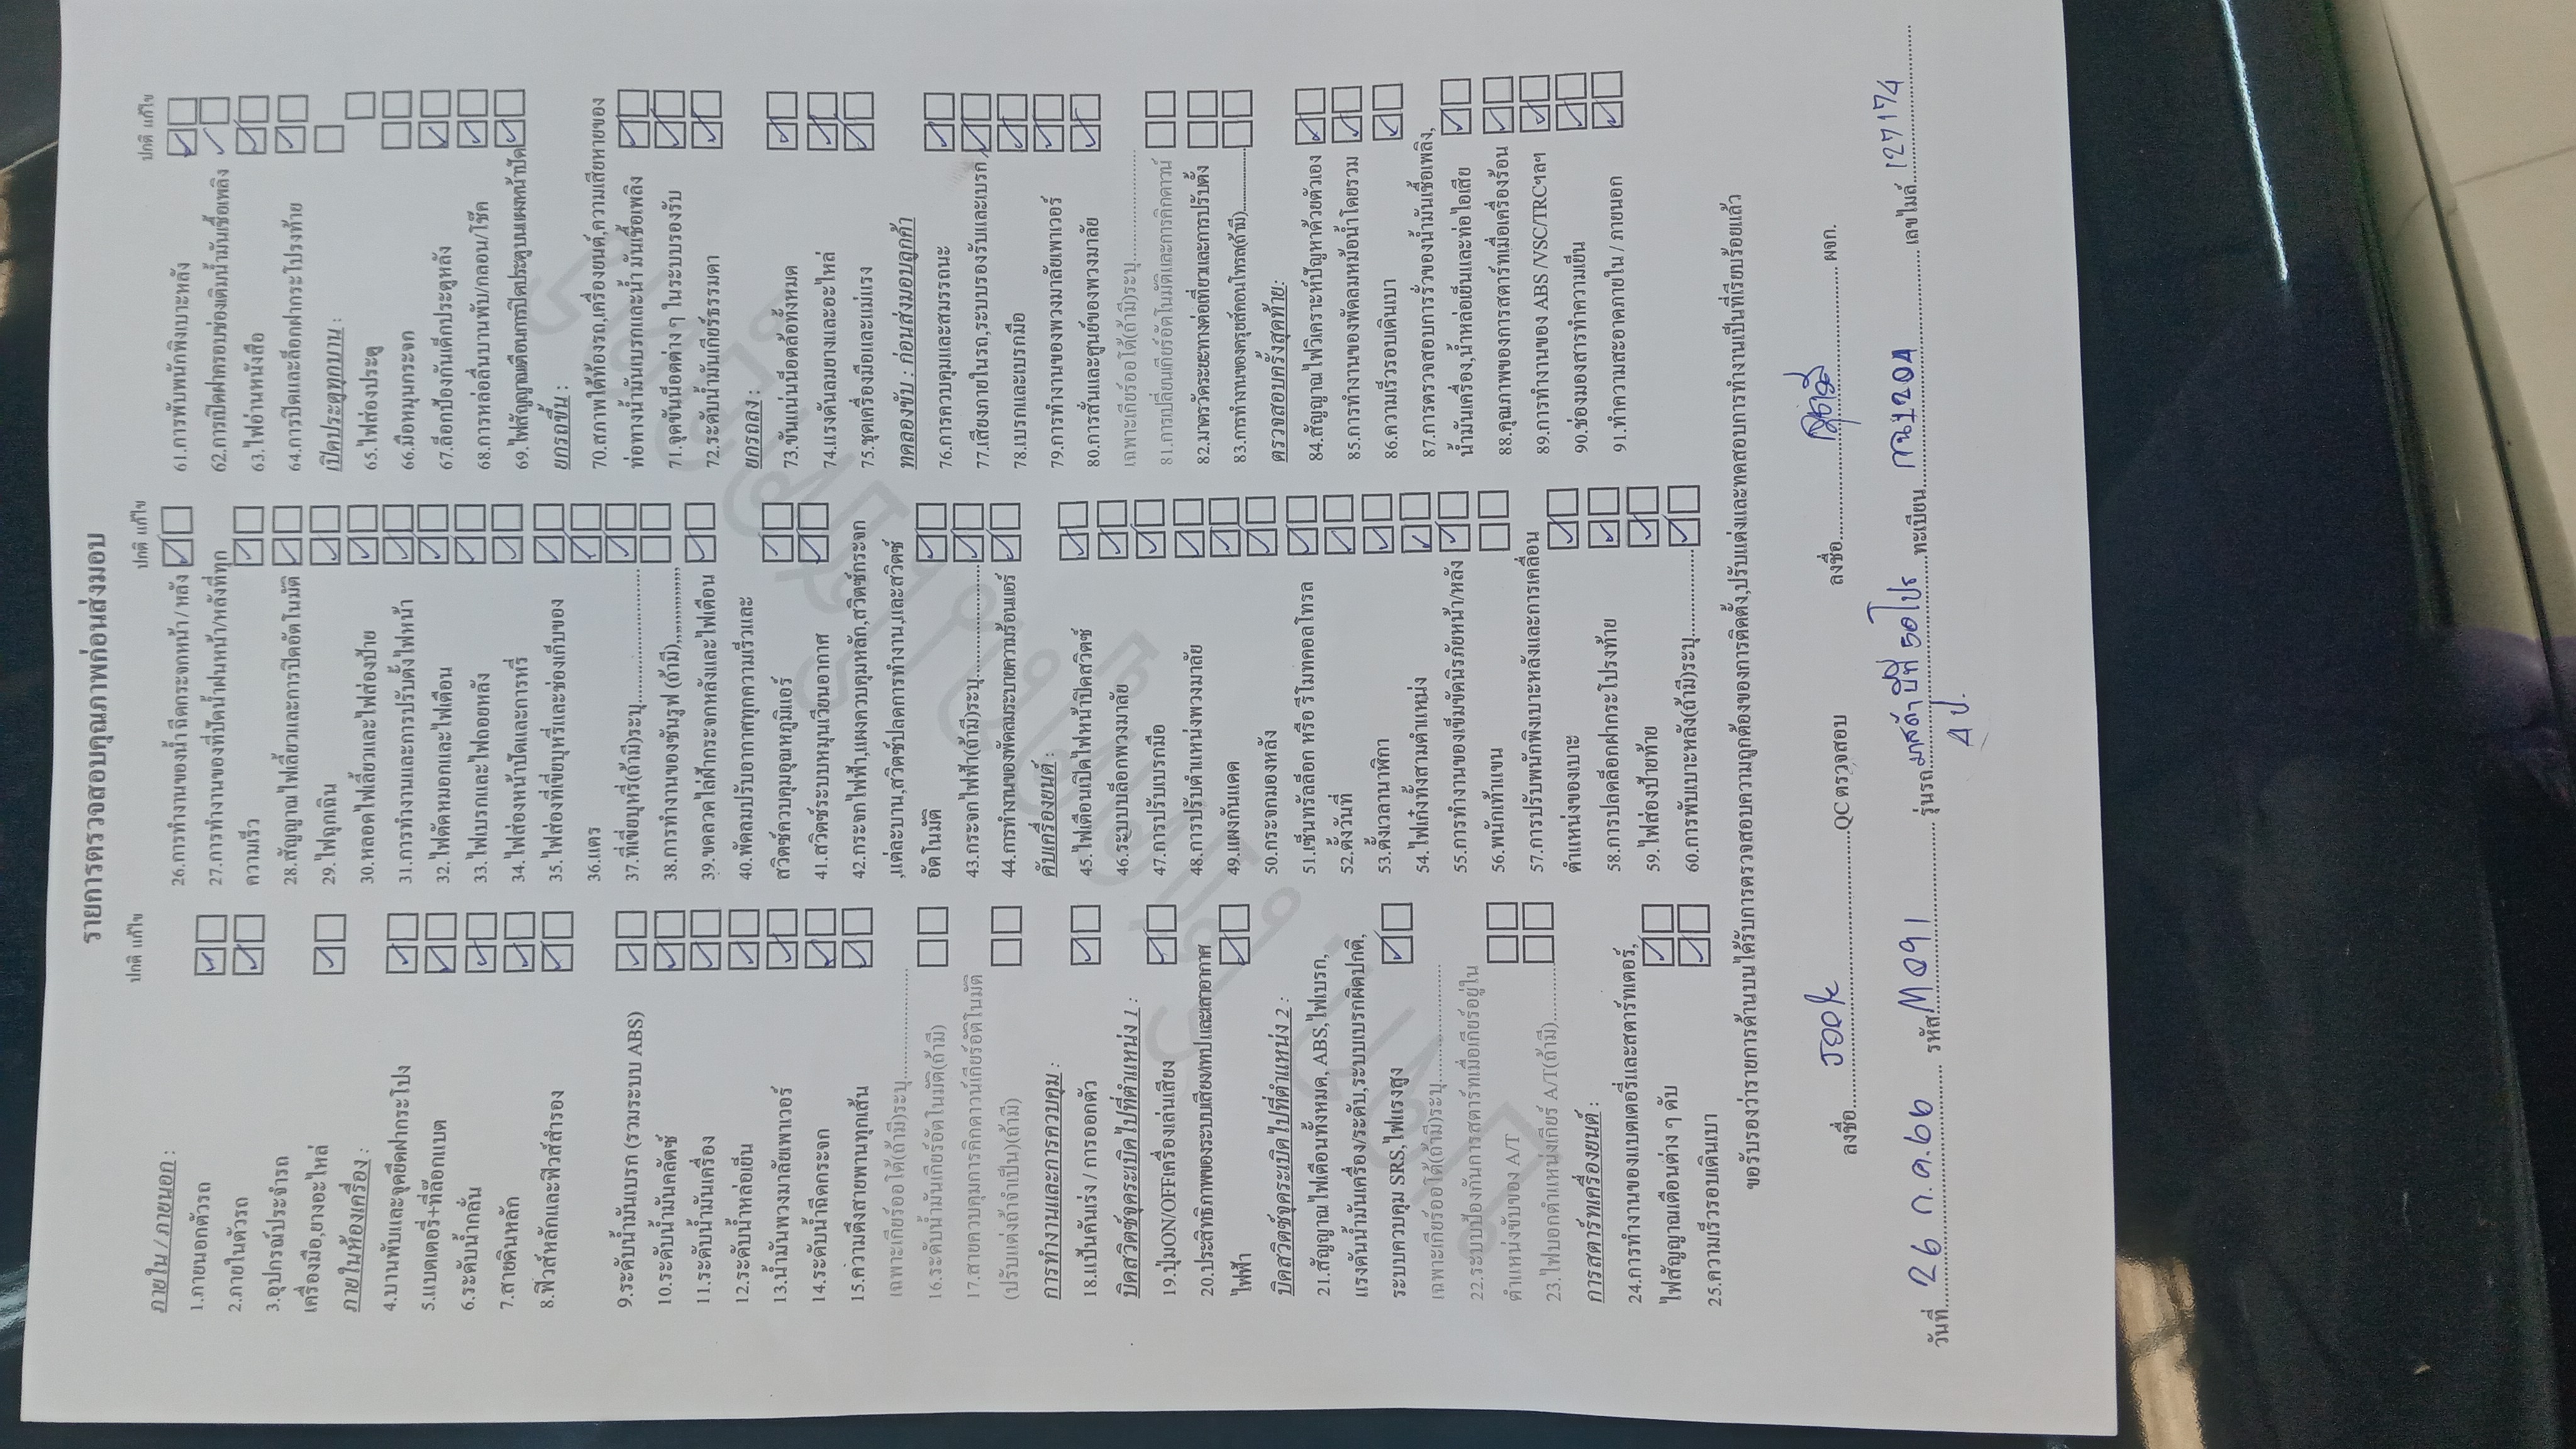 รายการตรวจสอบคุณภาพก่อนส่งมอบ
ปกติ แก้ไข
ภายใน / ภายนอก :
1.ภายนอกตัวรถ
2.ภายในตัวรถ
3.อุปกรณ์ประจำรถ
เครื่องมือ,ยางอะไหล่
ภายในห้องเครื่อง :
4.บานพับและจุดยึดฝากระโปง
5.แบตเตอรี่+ที่ล๊อกแบต
6.ระดับน้ำกลั่น
7.สายดินหลัก
8.ฟิวส์หลักและฟิวส์สำรอง
9.ระดับน้ำมันเบรก (รวมระบบ ABS)
10.ระดับน้ำมันคลัตซ์
11.ระดับน้ำมันเครื่อง
12.ระดับน้ำหล่อเย็น
13.น้ำมันพวงมาลัยเพาเวอร์
14.ระดับน้ำฉีดกระจก
15.ความตึงสายพานทุกเส้น
เฉพาะเกียร์ออโต้(ถ้ามี)ระบุ....................
16.ระดับน้ำมันเกียร์อัตโนมัติ(ถ้ามี)
17.สายควบคุมการคิกดาวน์เกียร์อัติโนมัติ
(ปรับแต่งถ้าจำเป็น)(ถ้ามี)
การทำงานและการควบคุม :
18.แป้นคันเร่ง / การออกตัว
บิดสวิตช์จุดระเบิดไปที่ตำแหน่ง 1 :
19.ปุ่มON/OFFเครื่องเล่นเสียง
20.ประสิทธิภาพของระบบเสียง/เทป และเสาอากาศ
ไฟฟ้า
บิดสวิตช์จุดระเบิดไปที่ตำแหน่ง 2 :
21.สัญญาณไฟเตือนทั้งหมด, ABS,ไฟเบรก,
แรงดันน้ำมันเครื่อง/ระดับ,ระบบเบรกผิดปกติ,
ระบบควบคุม SRS,ไฟแรงสูง
เฉพาะเกียร์ออโต้(ถ้ามี)ระบุ....................
22.ระบบป้องกันการสตาร์ทเมื่อเกียร์อยู่ใน
ตำแหน่งขับของ A/T
23.ไฟบอกตำแหน่งเกียร์ A/T(ถ้ามี)..........
การสตาร์ทเครื่องยนต์ :
24.การทำงานของแบตเตอรี่และสตาร์ทเตอร์,
ไฟสัญญาณเตือนต่าง ๆ ดับ
25.ความเร็วรอบเดินเบา
ปกติ แก้ไข
26.การทำงานของน้ำ ฉีดกระจกหน้า / หลัง
27.การทำงานของที่ปัดน้ำฝนหน้า/หลังที่ทุก
ความเร็ว
28.สัญญาณไฟเลี้ยวและการปิดอัตโนมัติ
29.ไฟฉุกเฉิน
30.หลอดไฟเลี้ยวและไฟส่องป้าย
31.การทำงานและการปรับตั้งไฟหน้า
32.ไฟตัดหมอกและไฟเตือน
33.ไฟเบรกและไฟถอยหลัง
34.ไฟส่องหน้าปัดและการหรี่
35.ไฟส่องที่เขี่ยบุหรี่และช่องเก็บของ
36.แตร
37.ที่เขี่ยบุหรี่(ถ้ามี)ระบุ....................
38.การทำงานของซันรูฟ (ถ้ามี),,,,,,,,,,,,,,,
39.ขดลวดไล่ฝ้ากระจกหลังและไฟเตือน
40.พัดลมปรับอากาศทุกความเร็วและ
สวิตช์ควบคุมอุณหภูมิแอร์
41.สวิตช์ระบบหมุนเวียนอากาศ
42.กระจกไฟฟ้า,แผงควบคุมหลัก,สวิตซ์กระจก
,แต่ละบาน,สวิตช์ปลดการทำงาน,และสวิตซ์
อัตโนมัติ
43.กระจกไฟฟ้า(ถ้ามี)ระบุ....................
44.การทำงานของพัดลมระบายความร้อนแอร์
ดับเครื่องยนต์ :
45.ไฟเตือนเปิดไฟหน้าปิดสวิตซ์
46.ระบบบล็อกพวงมาลัย
47.การปรับเบรกมือ
48.การปรับตำแหน่งพวงมาลัย
49.แผงกันแดด
50.กระจกมองหลัง
51.เซ็นทรัลล็อก หรือ รีโมทคอลโทรล
52.ตั้งวันที่
53.ตั้งเวลานาฬิกา
54.ไฟเก๋งทั้งสามตำแหน่ง
55.การทำงานของเข็มขัดนิรภัยหน้า/หลัง
56.พนักเท้าแขน
57.การปรับพนักพิงเบาะหลังและการเคลื่อน
ตำแหน่งของเบาะ
58.การปลดล็อกฝากระโปรงท้าย
59.ไฟส่องป้ายท้าย
60.การพับเบาะหลัง(ถ้ามี)ระบุ....................
ปกติ แก้ไข
61.การพับพนักพิงเบาะหลัง
62.การปิดฝาครอบช่องเติมน้ำมันเชื้อเพลิง
63.ไฟอ่านหนังสือ
64.การปิดและล็อกฝากระโปรงท้าย
เปิดประตูทุกบาน :
65.ไฟส่องประตู
66.มือหมุนกระจก
67.ล็อกป้องกันเด็กประตูหลัง
68.การหล่อลื่นบานพับ/กลอน/โช๊ค
69.ไฟสัญญาณเตือนการปิดประตูบนแผงหน้าปัด
ยกรถขึ้น :
70.สภาพใต้ท้องรถ,เครื่องยนต์,ความเสียหายของ
ท่อทางน้ำมันเบรกและน้ำ มันเชื้อเพลิง
71.จุดขันน็อตต่าง ๆ ในระบบรองรับ
72.ระดับน้ำมันเกียร์ธรรมดา
ยกรถลง :
73.ขันแน่นน็อตล้อทั้งหมด
74.แรงดันลมยางและอะไหล่
75.ชุดเครื่องมือและแม่แรง
ทดลองขับ : ก่อนส่งมอบลูกค้า
76.การควบคุมและสมรรถนะ
77.เสียงภายในรถ,ระบบรองรับและเบรก
78.เบรกและเบรกมือ
79.การทำงานของพวงมาลัยเพาเวอร์
80.การสั่นและศูนย์ของพวงมาลัย
เฉพาะเกียร์ออโต้(ถ้ามี)ระบุ....................
81.การเปลี่ยนเกียร์อัตโนมัติและการคิกดาวน์
82.มาตรวัดระยะทางต่อเที่ยวและการปรับตั้ง
83.การทำงานของครุยส์คอนโทรล(ถ้ามี)....................
ตรวจสอบครั้งสุดท้าย:
84.สัญญาณไฟวิเคราะห์ปัญหาด้วยตัวเอง
85.การทำงานของพัดลมหม้อน้ำโดยรวม
86.ความเร็วรอบเดินเบา
87.การตรวจสอบการรั่วของน้ำมันเชื้อเพลิง,
น้ำมันเครื่อง,น้ำหล่อเย็นและท่อไอเสีย
88.คุณภาพของการสตาร์ทเมื่อเครื่องร้อน
89.การทำงานของ ABS /VSC/TRCฯลฯ
90.ช่องมองสารทำความเย็น
91.ทำความสะอาดภายใน / ภายนอก
ขอรับรองว่ารายการด้านบนได้รับการตรวจสอบความถูกต้องของการติดตั้ง,ปรับแต่งและทดสอบการทำงานเป็นที่เรียบร้อยแล้ว
ลงชื่อ....................QCตรวจสอบ ลงชื่อ.................... ผจก.
วันที่ 26 ก.ค.66 รหัส M091 รุ่นรถ มาสด้า บีที 50 โปร ทะเบียน เลขไมล์ 127174
4 ป.